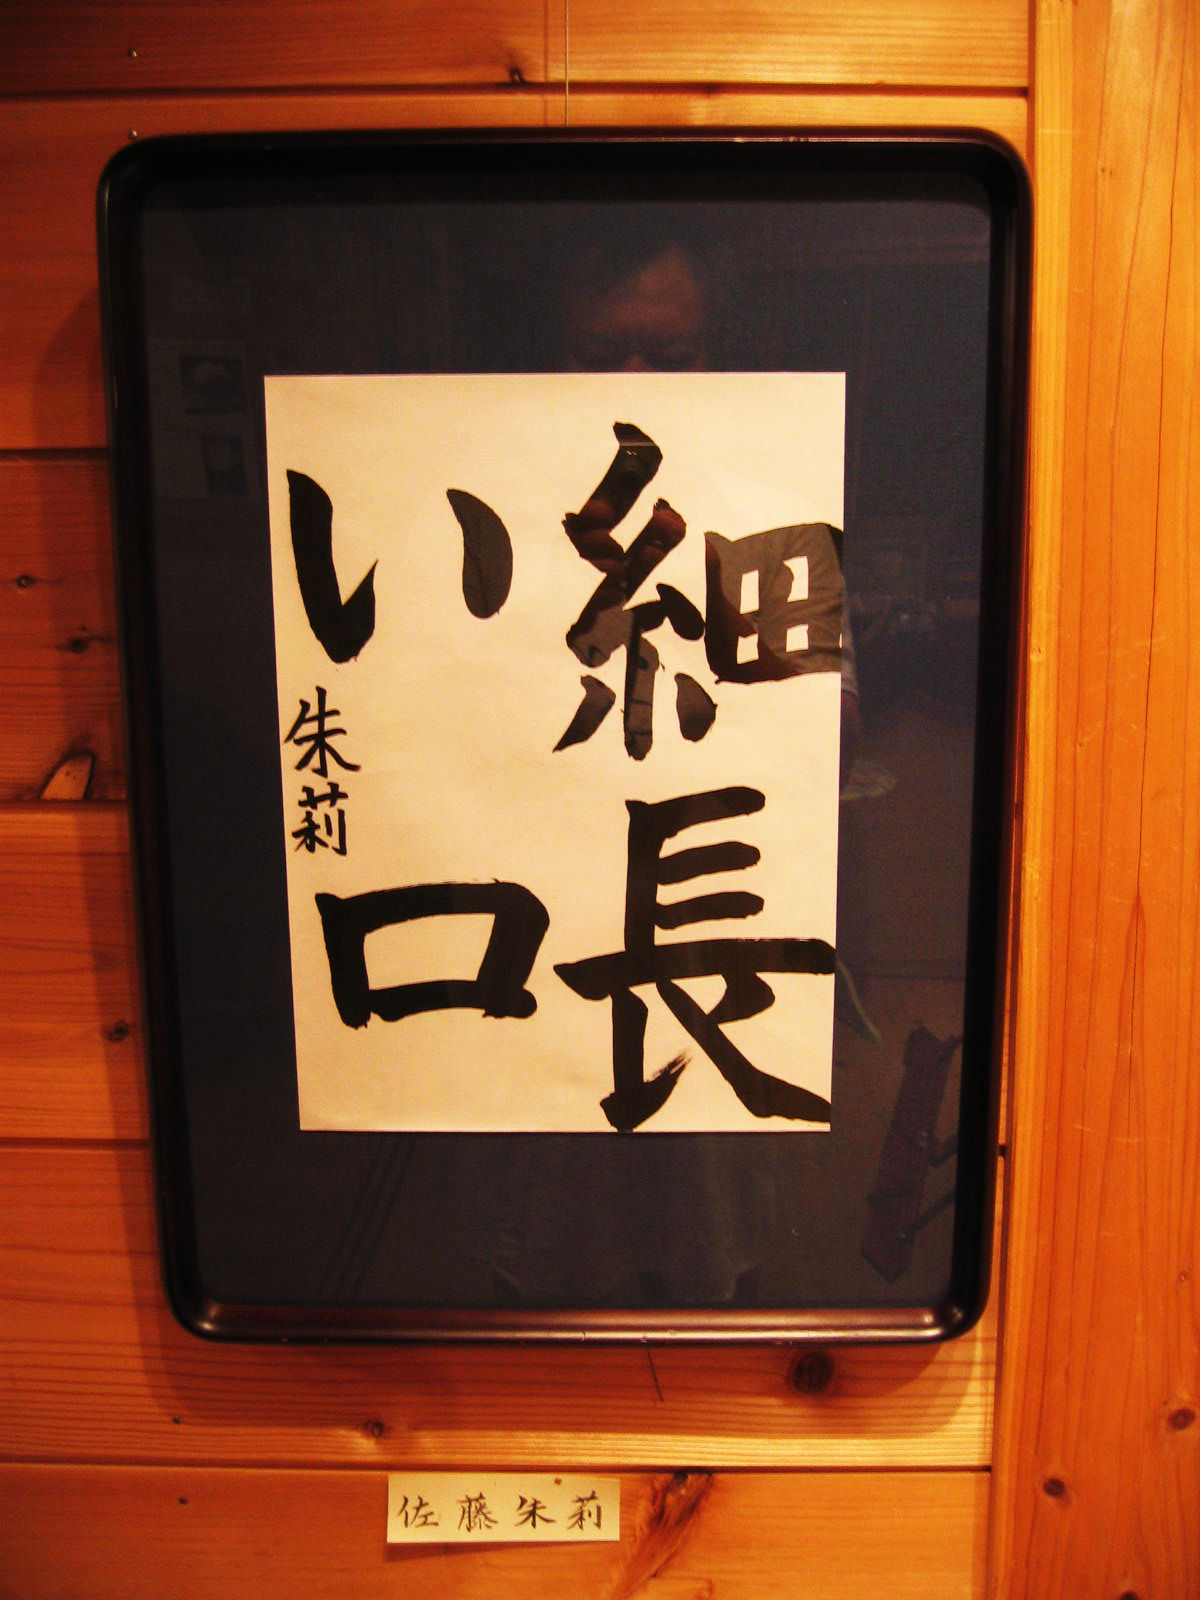 細長
い口
朱莉
佐藤朱莉